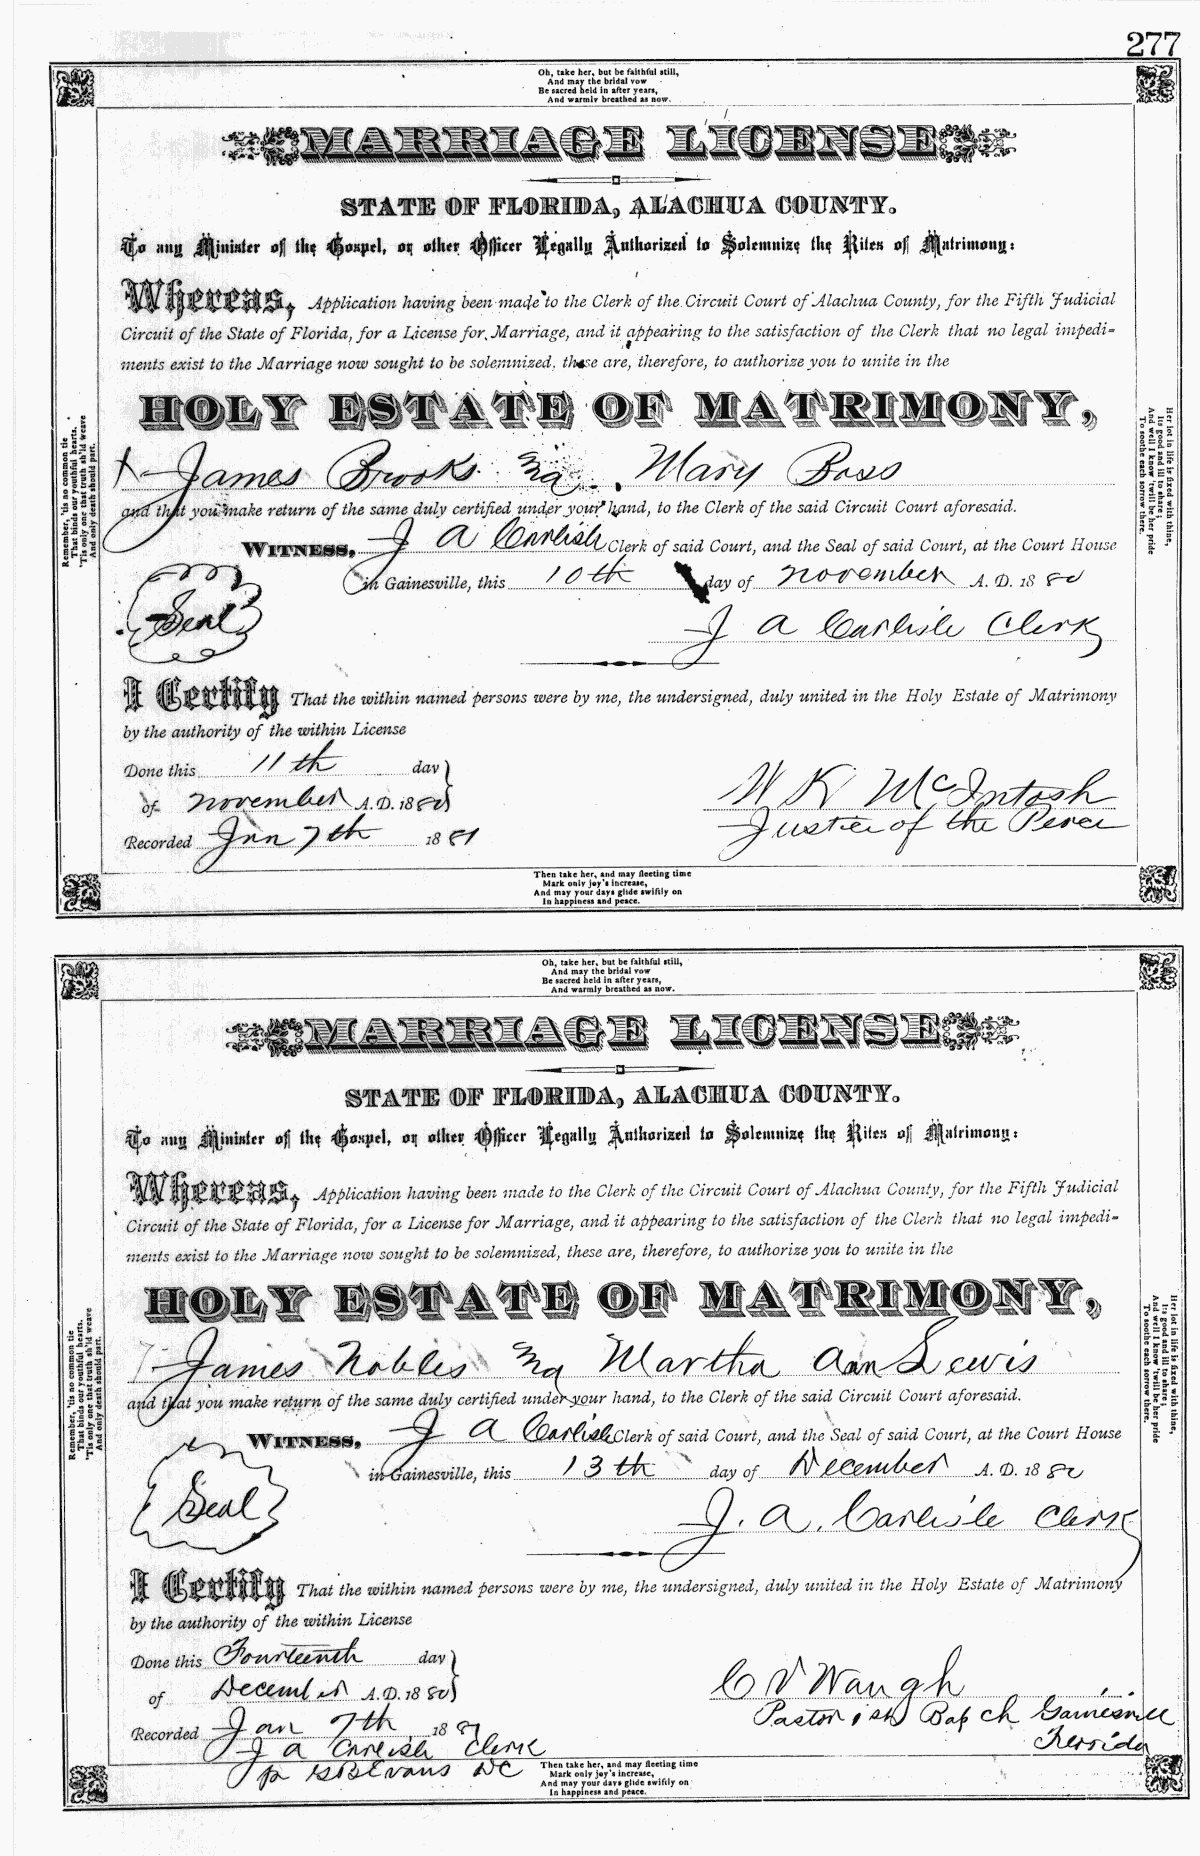 277
Oh, take her, but be faithful still,
And may the bridal vow
Be sacred held in after years,
And warmly breathed as now.
MARRIAGE LICENSE
STATE OF FLORIDA, ALACHUA COUNTY.
To any Minister of the Gospel, or other Officer Legally Authorized to Solemnize the Rites of Matrimony:
Whereas, Application having been made to the Clerk of the Circuit Court of Alachua County, for the Fifth Judicial
Circuit of the State of Florida, for a License for Marriage, and it appearing to the satisfaction of the Clerk that no legal impedi-
ments exist to the Marriage now sought to be solemnized, these are, therefore, to authorize you to unite in the
HOLY ESTATE OF MATRIMONY,
James Brooks Mary Boss
and that you make return of the same duly certified under your hand, to the Clerk of the said Circuit Court aforesaid.
WITNESS, J A Carlisle Clerk of said Court, and the Seal of said Court, at the Court House
in Gainesville, this 10th day of November A. D. 1880
Seal
J A Carlisle Clerk
I Certify That the within named persons were by me, the undersigned, duly united in the Holy Estate of Matrimony
by the authority of the within License
Done this 11th day
of November A. D. 1880
W K McIntosh
Justice of the Peace
Recorded Jan 7th 1881
Then take her, and may fleeting time
Mark only joy's increase,
And may your days glide swiftly on
In happiness and peace.
Remember, 'tis no common tie
That binds our youthful hearts,
'Tis only one that truth sh'ld weave
And only death should part.
Her lot in life is fixed with thine,
Its good and ill to share;
And well I know 'twill be her pride
To soothe each sorrow there.
Oh, take her, but be faithful still,
And may the bridal vow
Be sacred held in after years,
And warmly breathed as now.
MARRIAGE LICENSE
STATE OF FLORIDA, ALACHUA COUNTY.
To any Minister of the Gospel, or other Officer Legally Authorized to Solemnize the Rites of Matrimony:
Whereas, Application having been made to the Clerk of the Circuit Court of Alachua County, for the Fifth Judicial
Circuit of the State of Florida, for a License for Marriage, and it appearing to the satisfaction of the Clerk that no legal impedi-
ments exist to the Marriage now sought to be solemnized, these are, therefore, to authorize you to unite in the
HOLY ESTATE OF MATRIMONY,
James Nobles Martha Ann Lewis
and that you make return of the same duly certified under your hand, to the Clerk of the said Circuit Court aforesaid.
WITNESS, J A Carlisle Clerk of said Court, and the Seal of said Court, at the Court House
in Gainesville, this 13th day of December A. D. 1880
Seal
J. A. Carlisle Clerk
I Certify That the within named persons were by me, the undersigned, duly united in the Holy Estate of Matrimony
by the authority of the within License
Done this Fourteenth day
of December A. D. 1880
C V Waugh
Pastor 1st Bap ch Gainesville
Florida
Recorded Jan 7th 18
J A Carlisle Clerk
Evans DC
Then take her, and may fleeting time
Mark only joy's increase,
And may your days glide swiftly on
In happiness and peace.
Remember, 'tis no common tie
That binds our youthful hearts.
'Tis only one that truth sh'ld weave
And only death should part.
Her lot in life is fixed with thine,
Its good and ill to share;
And well I know 'twill be her pride
To soothe each sorrow there.